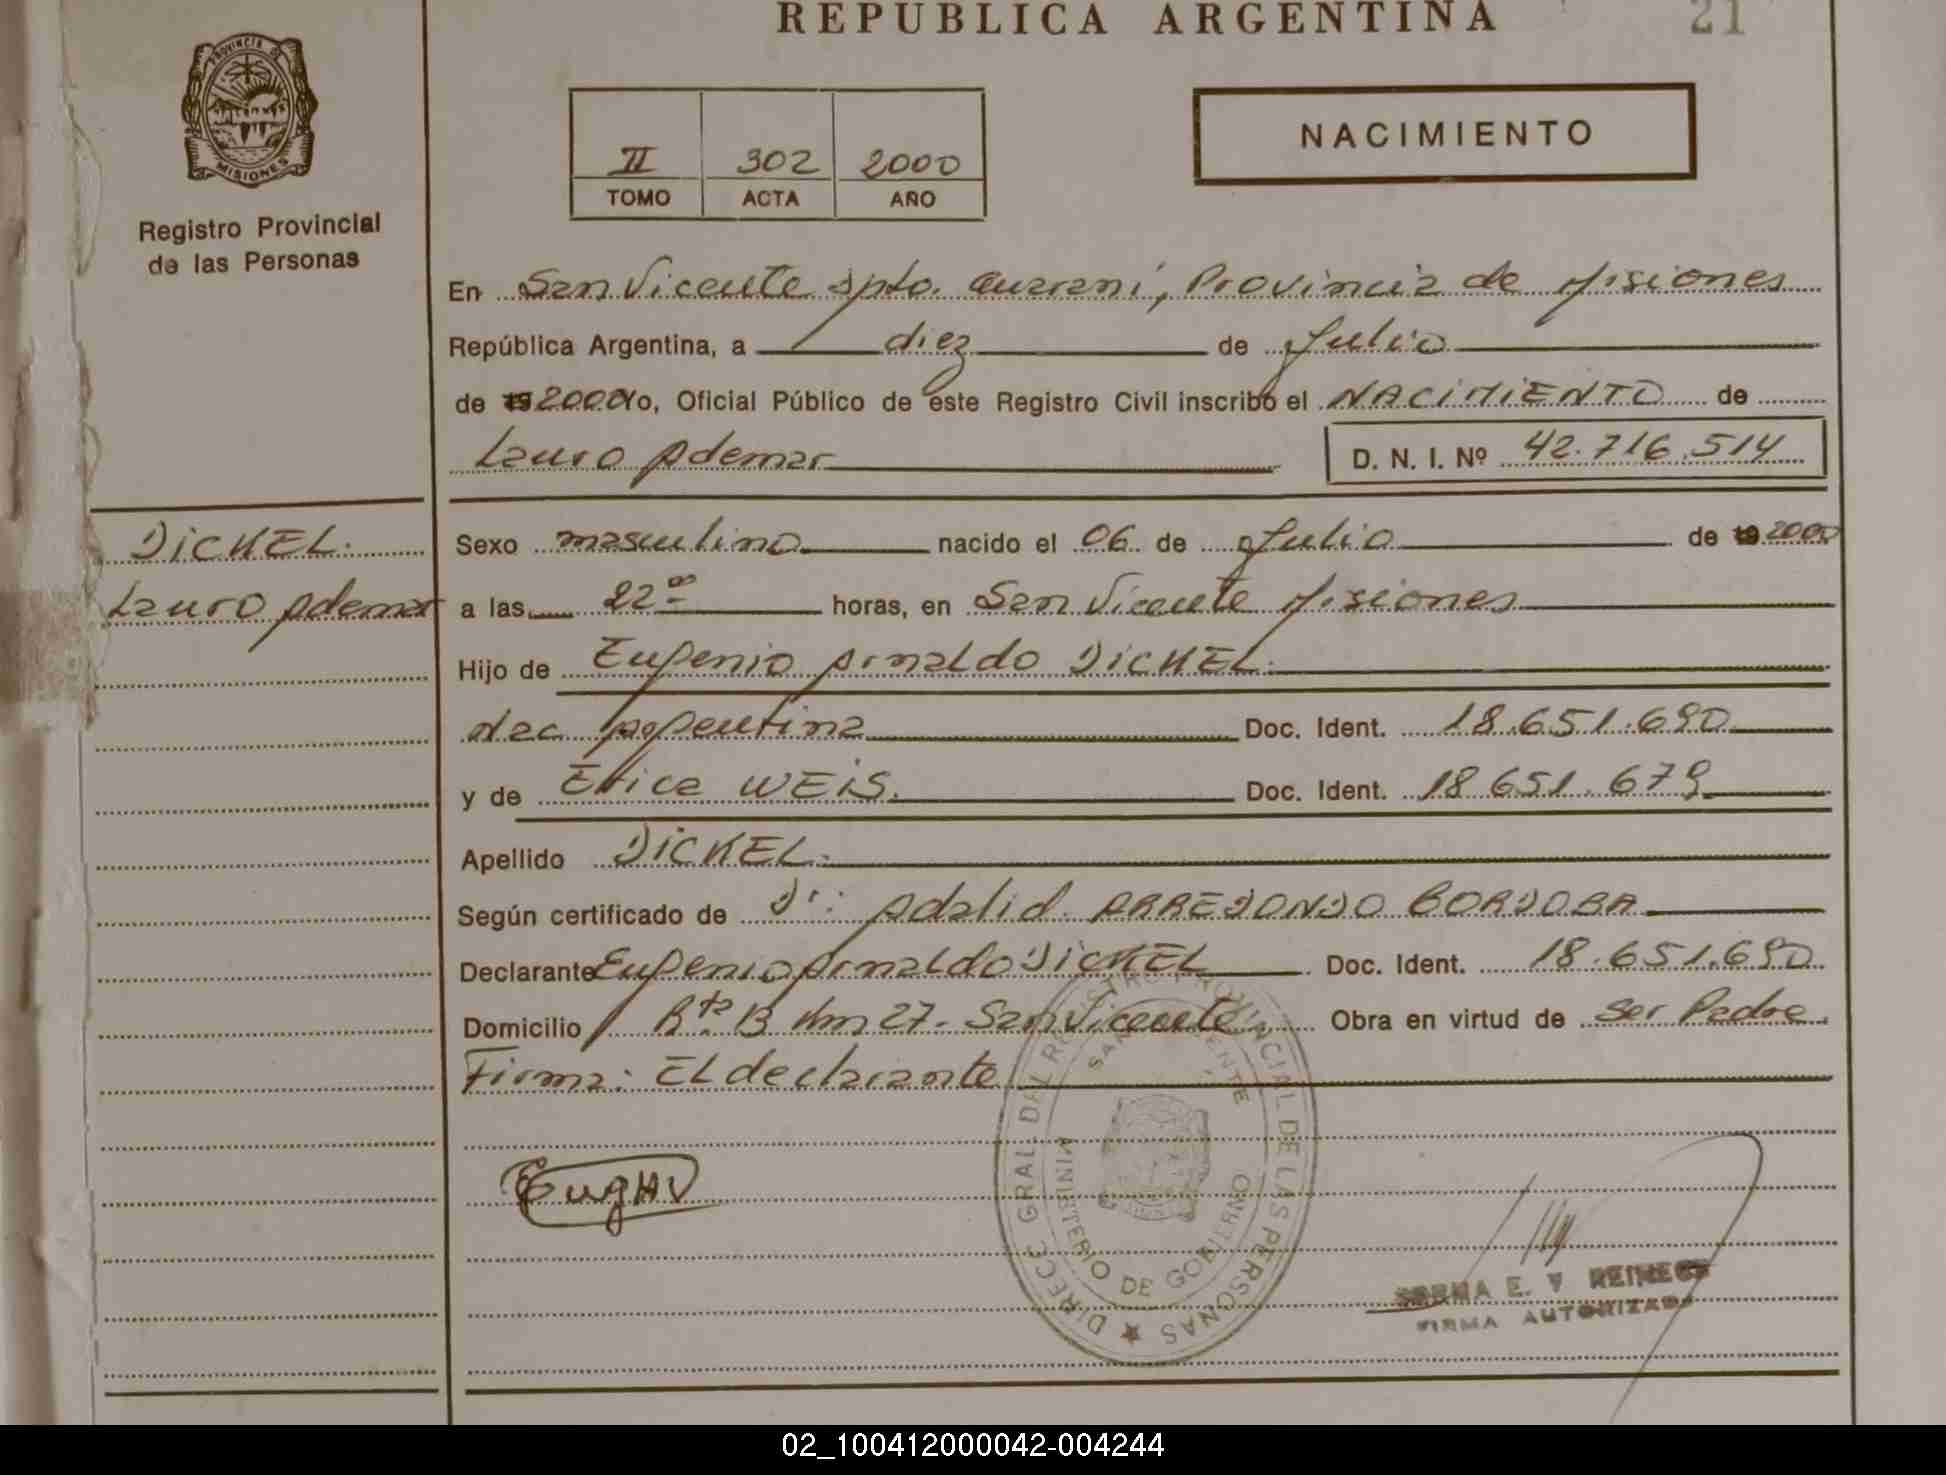 REPUBLICA ARGENTINA 21
PROVINCIA DE
MISIONES
Registro Provincial
de las Personas
II 302 2000
TOMO ACTA AÑO
NACIMIENTO
En San Vicente Dpto. Guarani, Provincia de Misiones
República Argentina, a diez de Julio
de 19 2000 Yo, Oficial Público de este Registro Civil inscribo el NACIMIENTO de
Lauro Ademar D. N. I. Nº 42.716.514
DICKEL.
Lauro Ademar
Sexo masculino nacido el 06 de Julio de 19 2000
a las 22 00 horas, en San Vicente Misiones
Hijo de Eugenio Arnaldo DICKEL.
Nac Argentina Doc. Ident. 18.651.690
y de Erica WEIS. Doc. Ident. 18.651.679
Apellido DICKEL.
Según certificado de Dr: Adalid ARREDONDO CORDOBA
Declarante Eugenio Arnaldo DICKEL Doc. Ident. 18.651.690
Domicilio Rta 13 Km 27- San Vicente. Obra en virtud de Ser Padre.
Firma: El declarante
DIRECC GRAL DEL REGISTRO PROVINCIAL DE LAS PERSONAS
SAN VICENTE
MINISTERIO DE GOBIERNO
E. V. REINECK
FIRMA AUTORIZADA
02_100412000042-004244